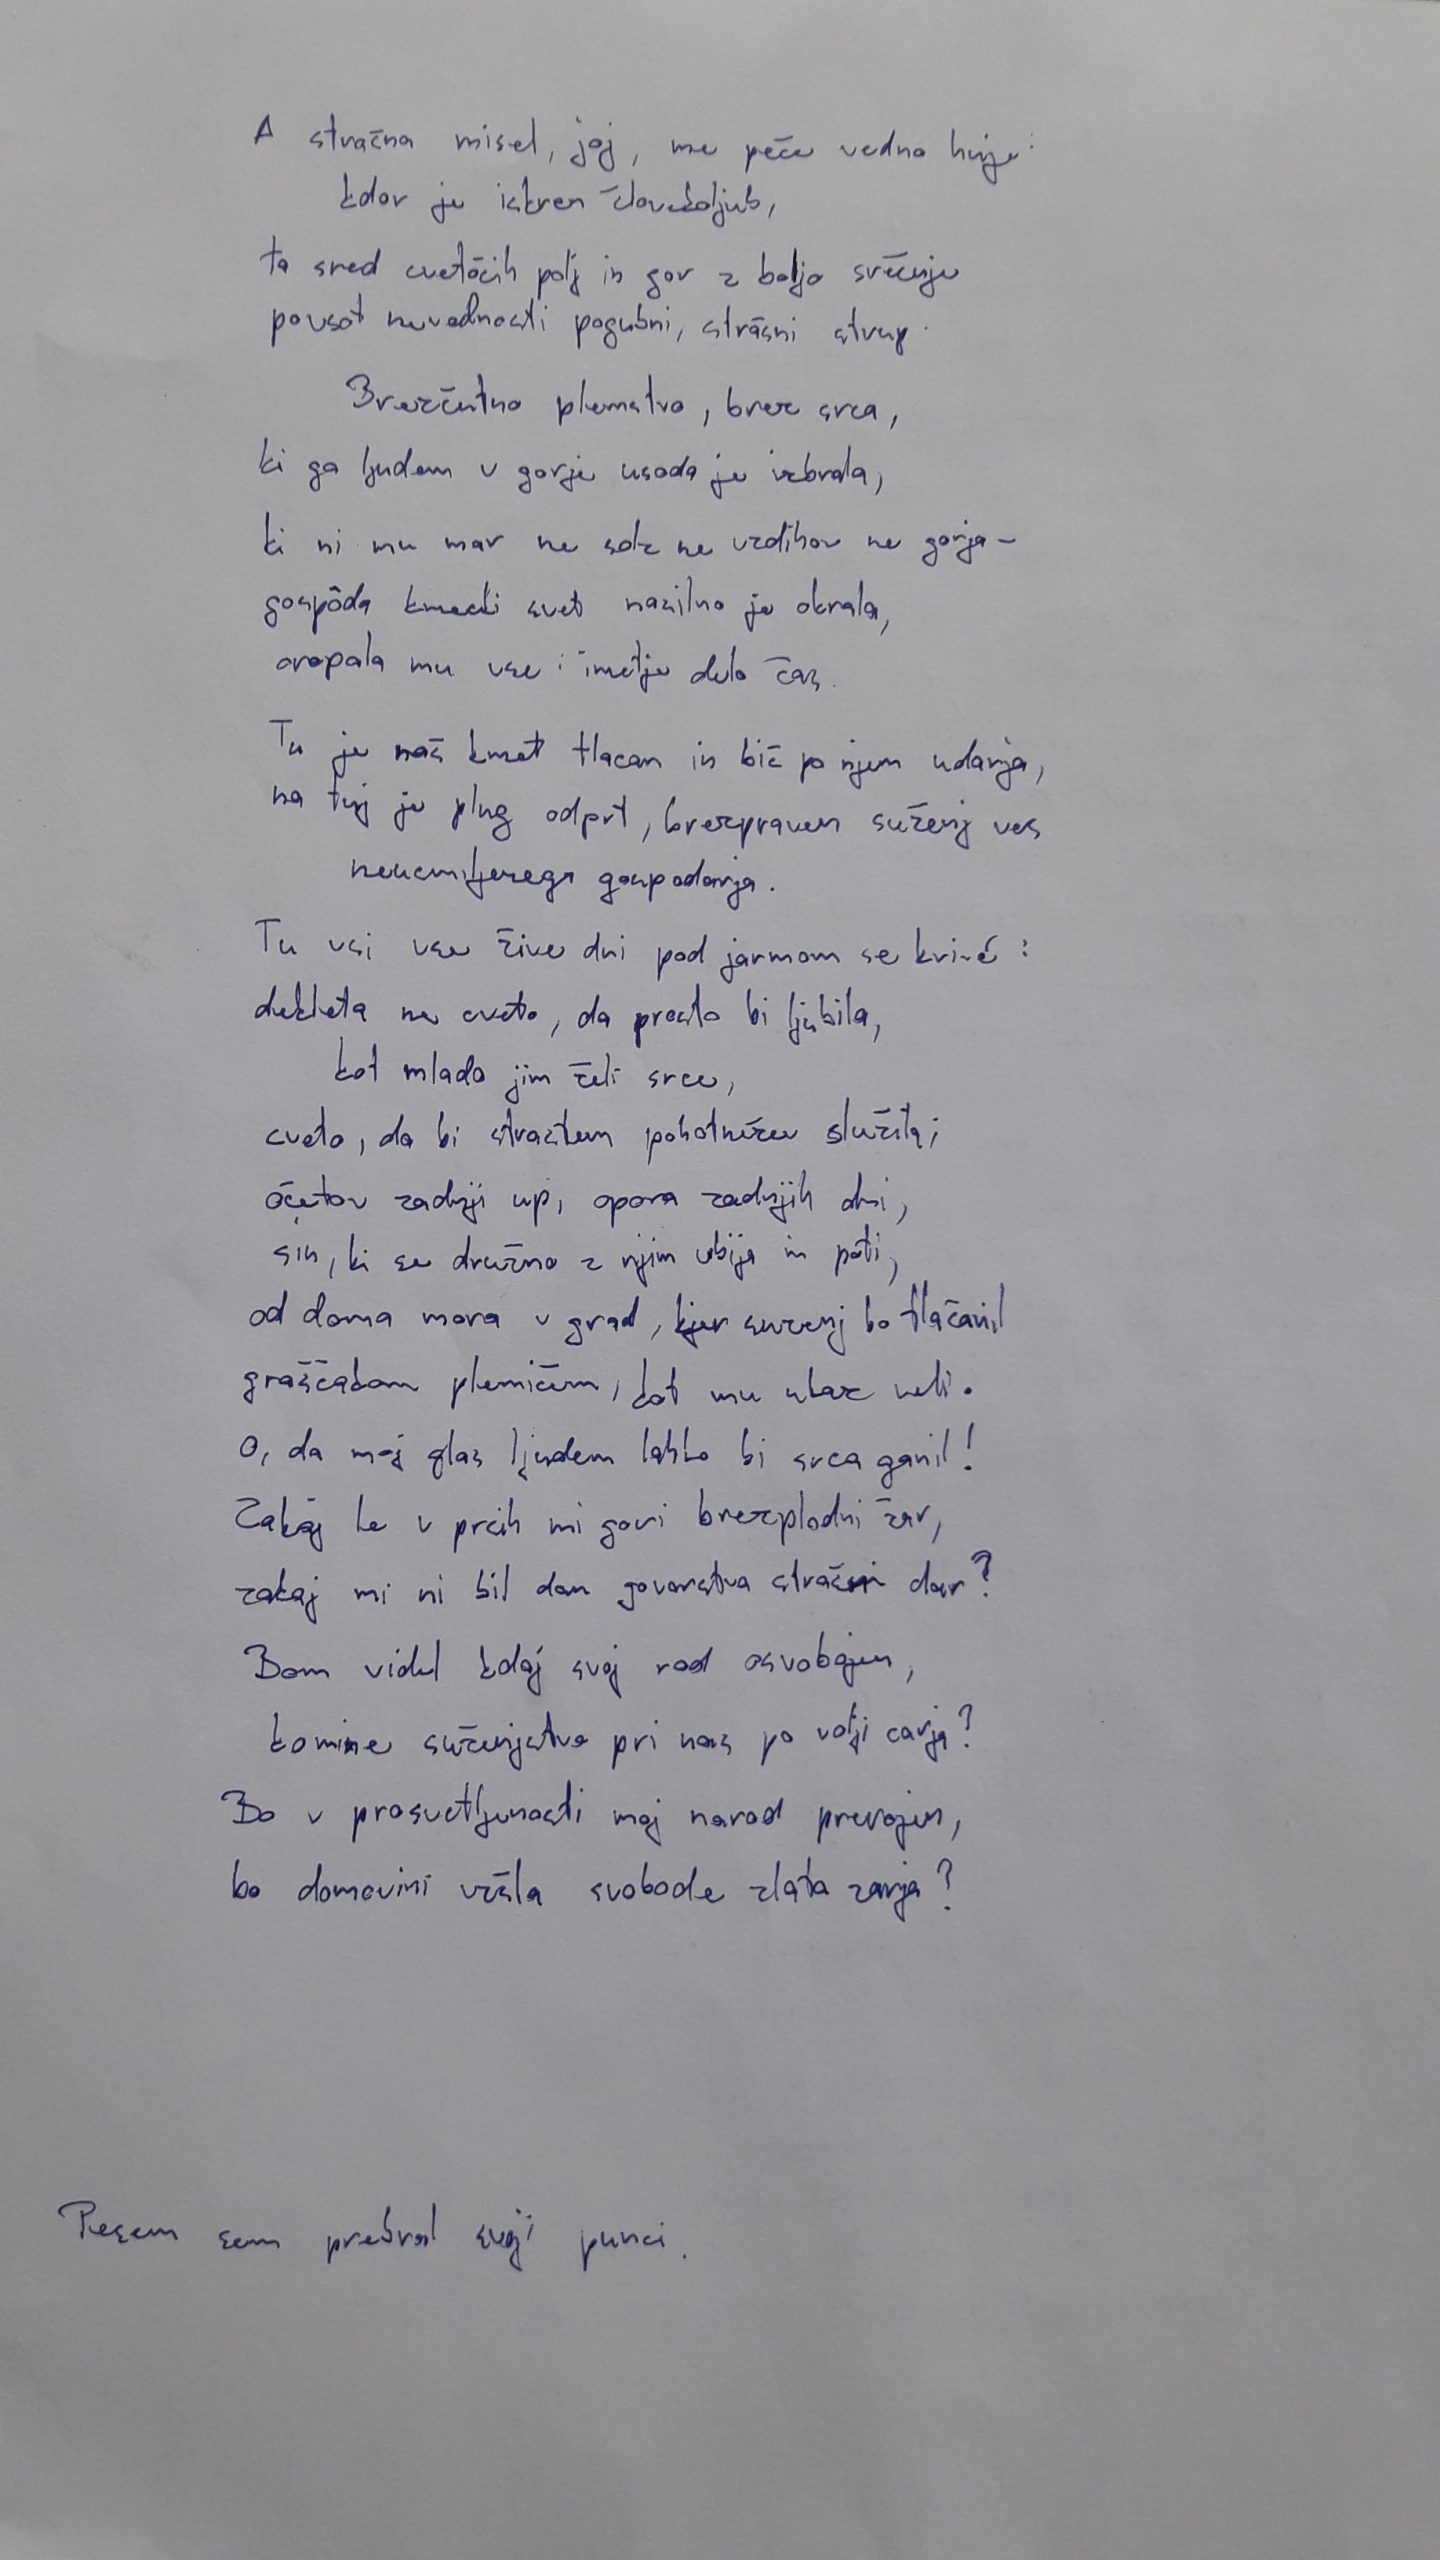 A strašna misel, joj, me peče vedno huje:
kdor je iskren človekoljub,
ta sred cvetočih polj in gor z boljo srčenje
povsot nevednosti pogubni, strašni strup.
Brezčutno plemstvo, brez srca,
ki ga ljudem v gorje usoda je izbrala,
ki ni mu mar ne solz ne vzdihov ne gorja -
gospôda kmečki svet nasilno je okrala,
oropala mu vse: imetje delo čas.
Tu je naš kmet tlačan in bič po njem udarja,
na tuj je plug odprt, brezpraven suženj ves
neusmiljenega gospodarja.
Tu vsi vse žive dni pod jarmom se krivé:
dekleta ne cveto, da prosto bi ljubila,
kot mlado jim želi srce,
cveto, da bi strastem pohotnežev služila;
očetov zadnji up, opora zadnjih dni,
sin, ki se družno z njim ubija in poti,
od doma mora v grad, kjer suženj bo tlačanil
graščakom plemičem, kot mu ukaz veli.
O, da moj glas ljudem lahko bi srca ganil!
Zakaj le v prsih mi gori brezplodni žar,
zakaj mi ni bil dan govorstva strašni dar?
Bom videl kdaj svoj rod osvobojen,
ko mine suženjstvo pri nas po volji carja?
Bo v prosvetljenosti moj narod prerojen,
bo domovini vzšla svobode zlata zarja?
Pesem sem prebral svoji punci.